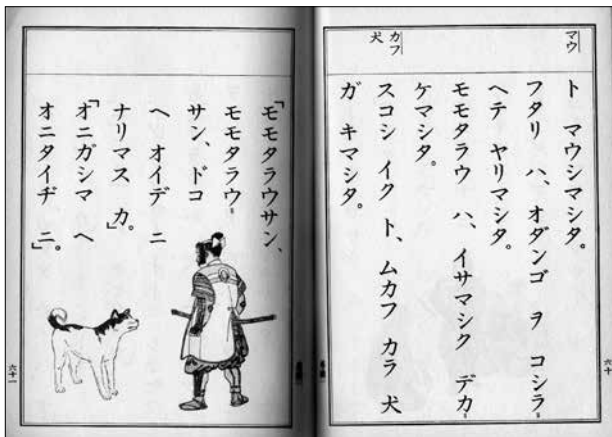 マウ
カフ
犬
ト マウシマシタ。
フタリ ハ、オダンゴ ヲ コシラ=
ヘテ ヤリマシタ。
モモタラウ ハ、イサマシク デカ=
ケマシタ。
スコシ イク ト、ムカフ カラ 犬
ガ キマシタ。
六十
「モモタラウサン、
モモタラウ=
サン、ドコ
ヘ オイデ ニ
ナリマス カ。」
「オニガシマ ヘ
オニタイヂ ニ。」
六十一